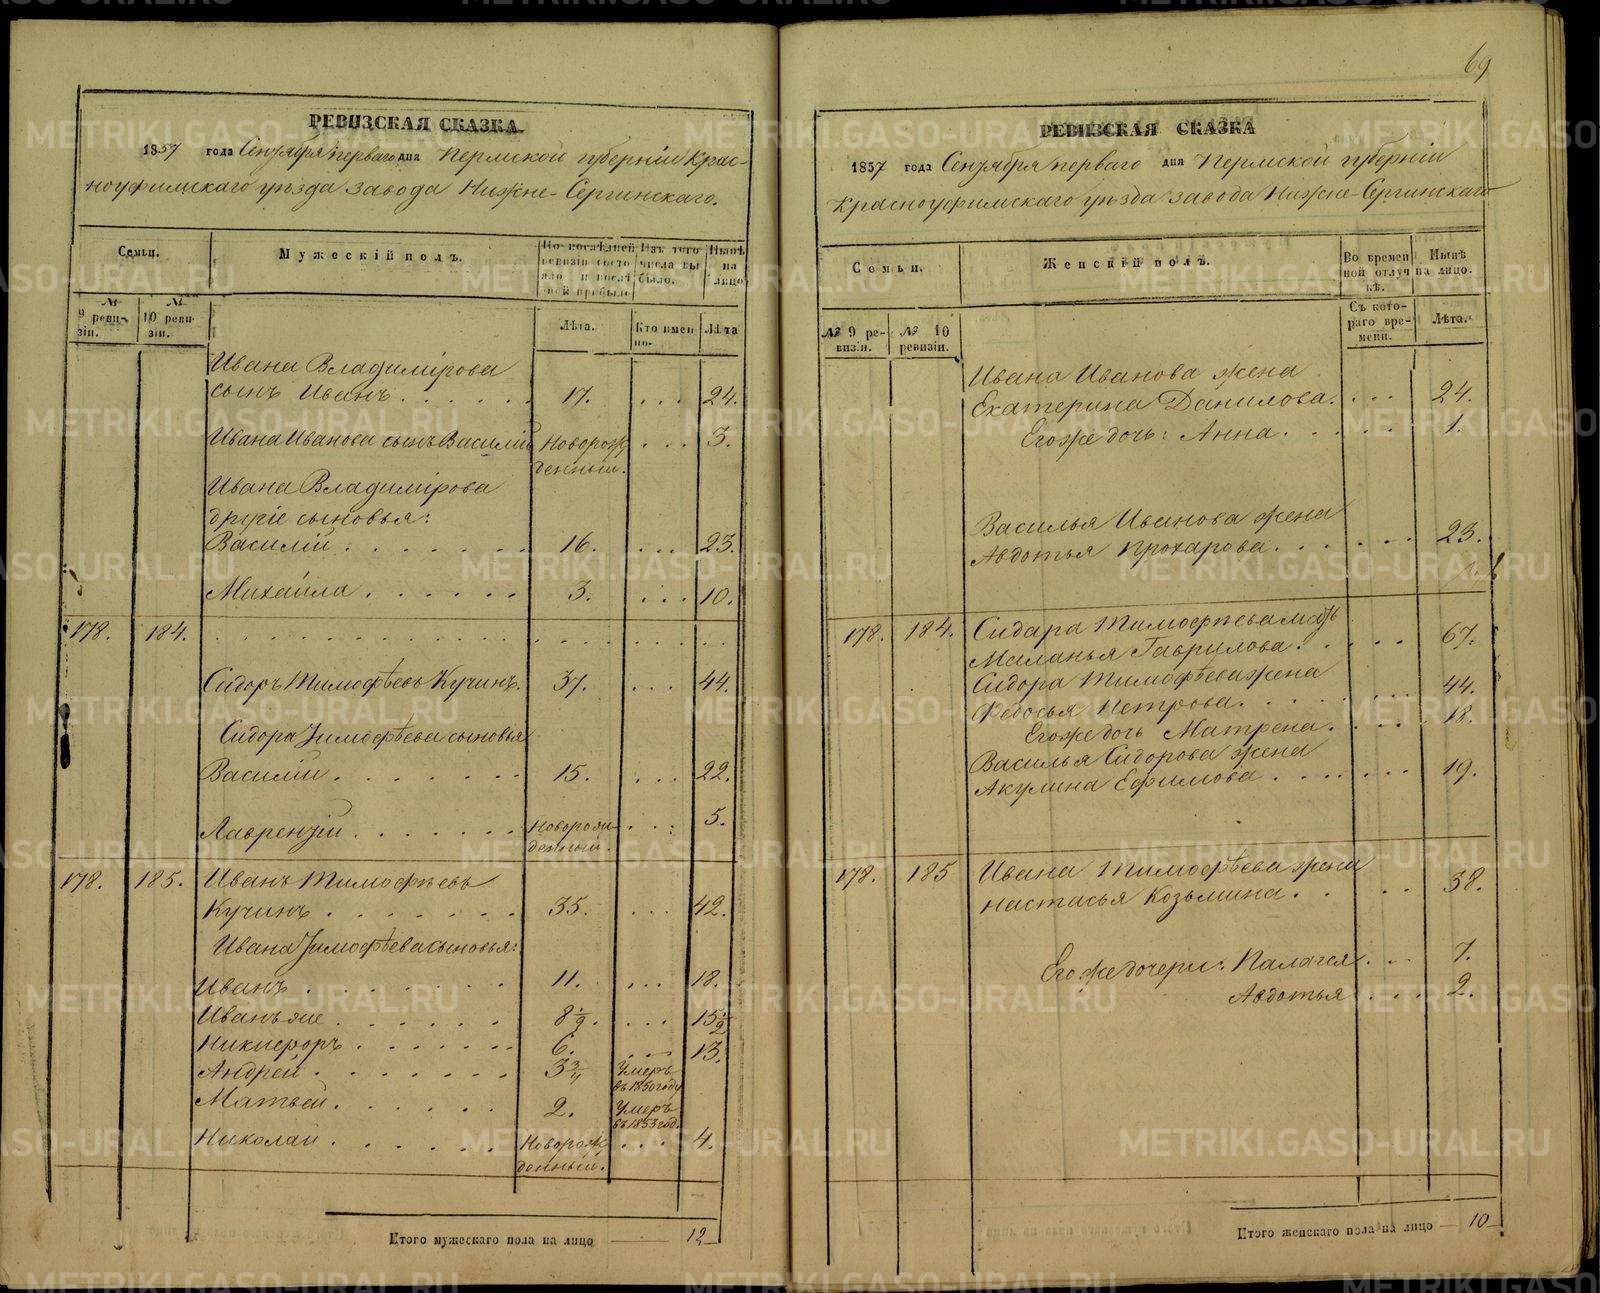 69
РЕВИЗСКАЯ СКАЗКА
1857 года Сентября перваго дня Пермской губерніи Крас-
ноуфимскаго уѣзда завода Нижне-Сергинскаго.
Семьи.
Мужескій полъ.
По послѣдней ревизіи состояло и послѣ оной прибыло
Изъ того числа выбыло.
Нынѣ на лицо
№ 9 ревизіи.
№ 10 ревизіи.
Лѣта.
Кто имен но.
Лѣта
Ивана Владимірова
сынъ Иванъ . . . . . . 17. . . . 24.
Ивана Иванова сынъ Василій Новорож . . . 3.
денный.
Ивана Владимірова
другіе сыновья:
Василій . . . . . . . 16. . . . 23.
Михайла . . . . . . 3. . . . 10.
178. 184.
Сидоръ Тимофѣевъ Кучинъ. 37. . . . 44.
Сидора Тимофѣева сыновья
Василій . . . . . . . 15. . . . 22.
Лаврентій . . . . . . . Новорож- . . . 5.
денный.
178. 185. Иванъ Тимофѣевъ
Кучинъ . . . . . . . 35. . . . 42.
Ивана Тимофѣева сыновья:
Иванъ . . . . . . . 11. . . . 18.
Иванъ же . . . . . . 8 1/2. . . . 15 1/2
Никифоръ . . . . . . . 6. . . . 13.
Андрей . . . . . . . 3 3/4 Умеръ
въ 1850 году
Матвей . . . . . . 2. Умеръ
въ 1853 год.
Николай . . . . . . Новорож . . . . 4.
денный.
Итого мужескаго пола на лицо 12
РЕВИЗСКАЯ СКАЗКА
1857 года Сентября перваго дня Пермской губерніи
Красноуфимскаго уѣзда завода Нижне-Сергинскаго
Семьи.
Женскій полъ.
Во времен ной отлуч кѣ.
Нынѣ на лицо.
№ 9 ревизіи.
№ 10 ревизіи.
Съ кото-раго вре-мени.
Лѣта.
Ивана Иванова жена
Екатерина Данилова. . . . 24.
Его же дочь: Анна . . . . . . 1.
Василья Иванова жена
Авдотья Прохарова . . . . . . 23.
178. 184. Сидара Тимофѣева мать
Маланья Гаврилова . . . . . 67.
Сидора Тимофѣева жена
Федосья Петрова . . . . . 44.
Его же дочь Матрена . . . . . 18.
Василья Сидорова жена
Акулина Ефимова . . . . . . . 19.
178. 185 Ивана Тимофѣева жена
Настасья Козьмина . . . . 38.
Его же дочери: Палагея . . . 7.
Авдотья . . . . 2.
Итого женскаго пола на лицо 10
METRIKI.GASO-URAL.RU